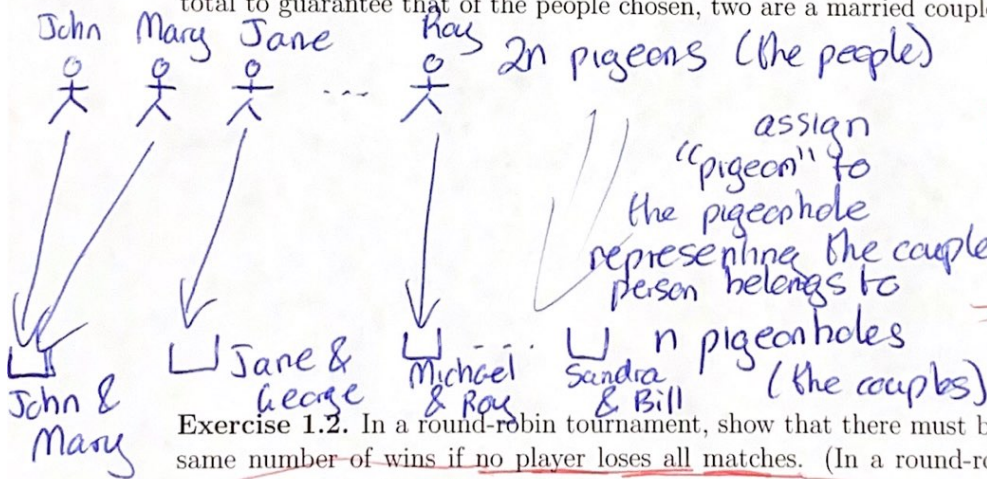 total to guarantee that of the people chosen, two are a married couple
John Mary Jane Roy
2n pigeons (the people)
...
assign
"pigeon" to
the pigeonhole
representing the couple
person belongs to
n pigeonholes
(the couples)
John &
Mary
Jane &
George
Michael
& Roy
....
Sandra
& Bill
Exercise 1.2. In a round-robin tournament, show that there must b
same number of wins if no player loses all matches. (In a round-ro